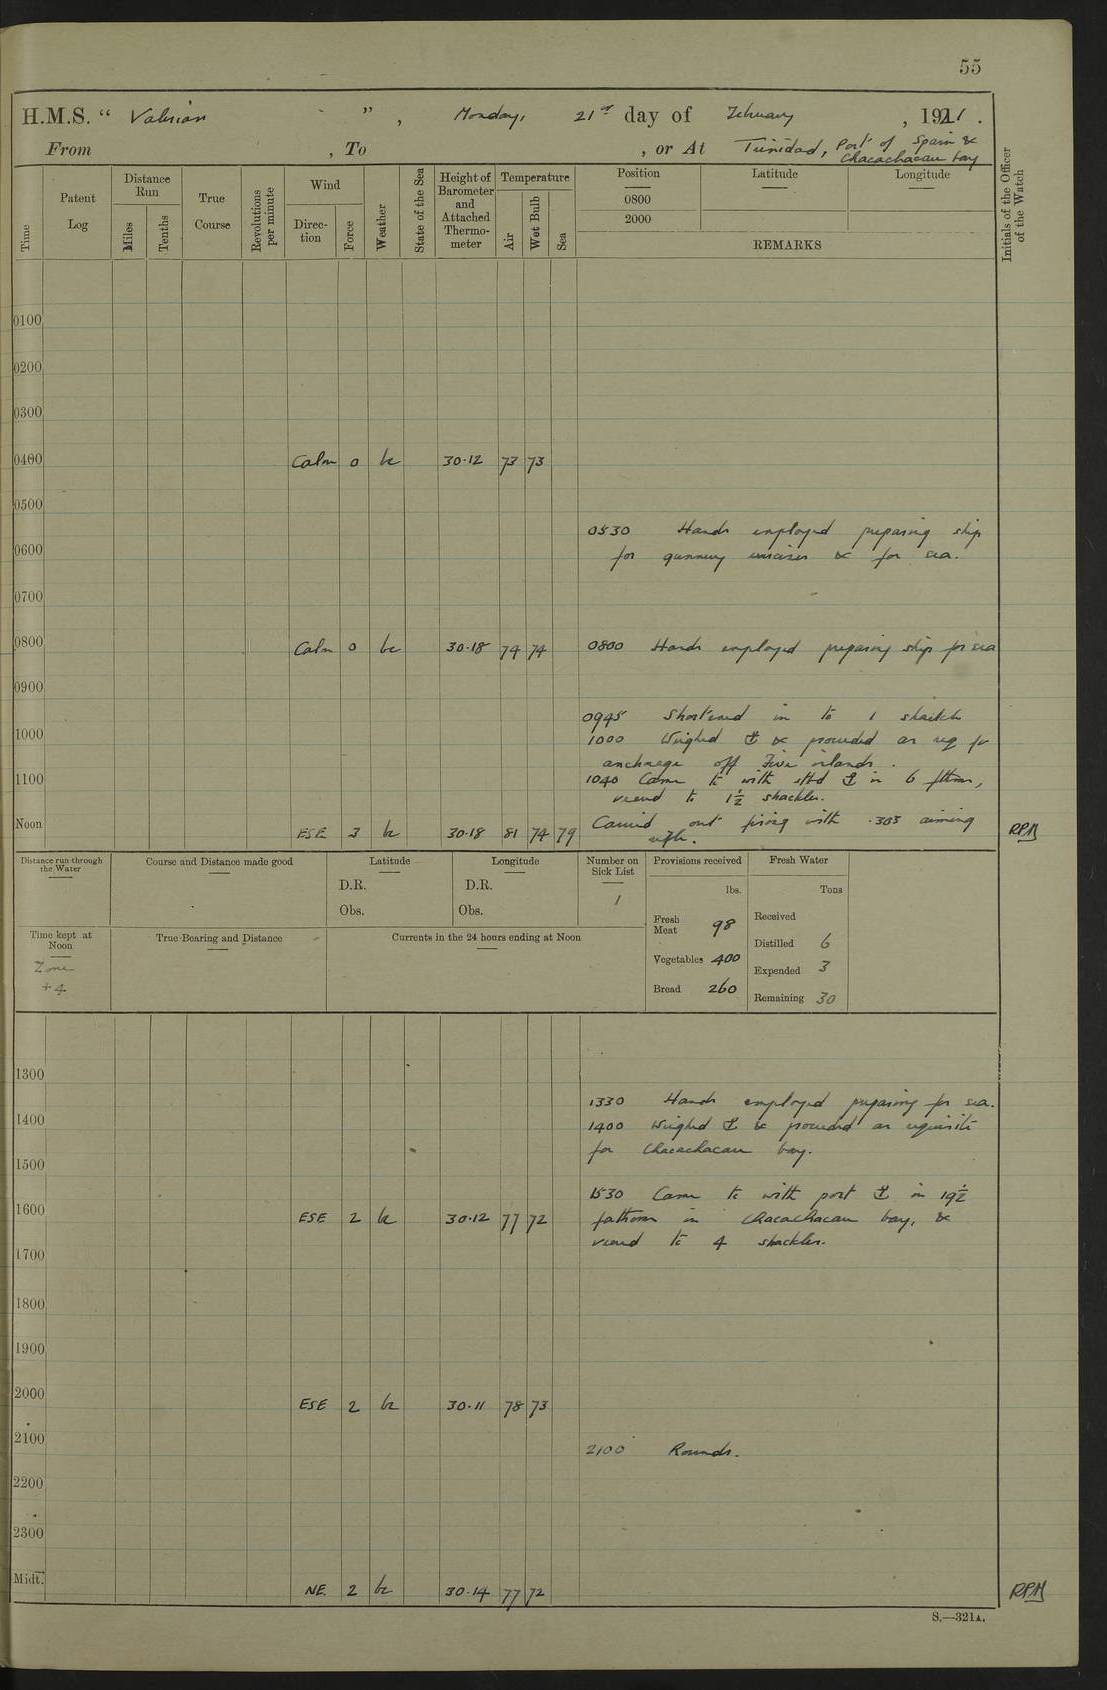 55
H.M.S. “ Valerian ” , Monday, 21st day of February , 1921 .
From , To , or At Trinidad, Port of Spain &
Chacachacau bay
Time
Patent Log
Distance Run
Miles
Tenths
True Course
Revolutions per minute
Wind
Direction
Force
Weather
State of the Sea
Height of Barometer and Attached Thermometer
Temperature
Air
Wet Bulb
Sea
Position
0800
2000
Latitude
Longitude
REMARKS
Initials of the Officer of the Watch
0100
0200
0300
0400 Calm 0 bc 30·12 73 73
0500
0530 Hands employed preparing ship
0600 for gunnery exercises & for sea.
0700
0800 Calm 0 bc 30·18 74 74 0800 Hands employed preparing ship for sea
0900
0945 Shortened in to 1 shackle
1000 1000 Weighed ⚓ & proceeded as req for
anchorage off Five islands.
1100 1040 Came to with stbd ⚓ in 6 fthms,
veered to 1½ shackles.
Noon ESE 3 bc 30·18 81 74 79 Carried out firing with .303 aiming
rifle. RPM
Distance run through the Water
Course and Distance made good
Latitude
D.R.
Obs.
Longitude
D.R.
Obs.
Number on Sick List
1
Provisions received
lbs.
Fresh Meat 98
Vegetables 400
Bread 260
Fresh Water
Tons
Received
Distilled 6
Expended 3
Remaining 30
Time kept at Noon
Zone
+4
True Bearing and Distance
Currents in the 24 hours ending at Noon
1300
1330 Hands employed preparing for sea.
1400 1400 Weighed ⚓ & proceeded as requisite
for Chacachacau bay.
1500
1530 Came to with port ⚓ in 19½
1600 ESE 2 bc 30·12 77 72 fathoms in Chacachacau bay, &
veered to 4 shackles.
1700
1800
1900
2000 ESE 2 bc 30·11 78 73
2100 2100 Rounds.
2200
2300
Midt. NE 2 bc 30·14 77 72 RPM
S.—321A.